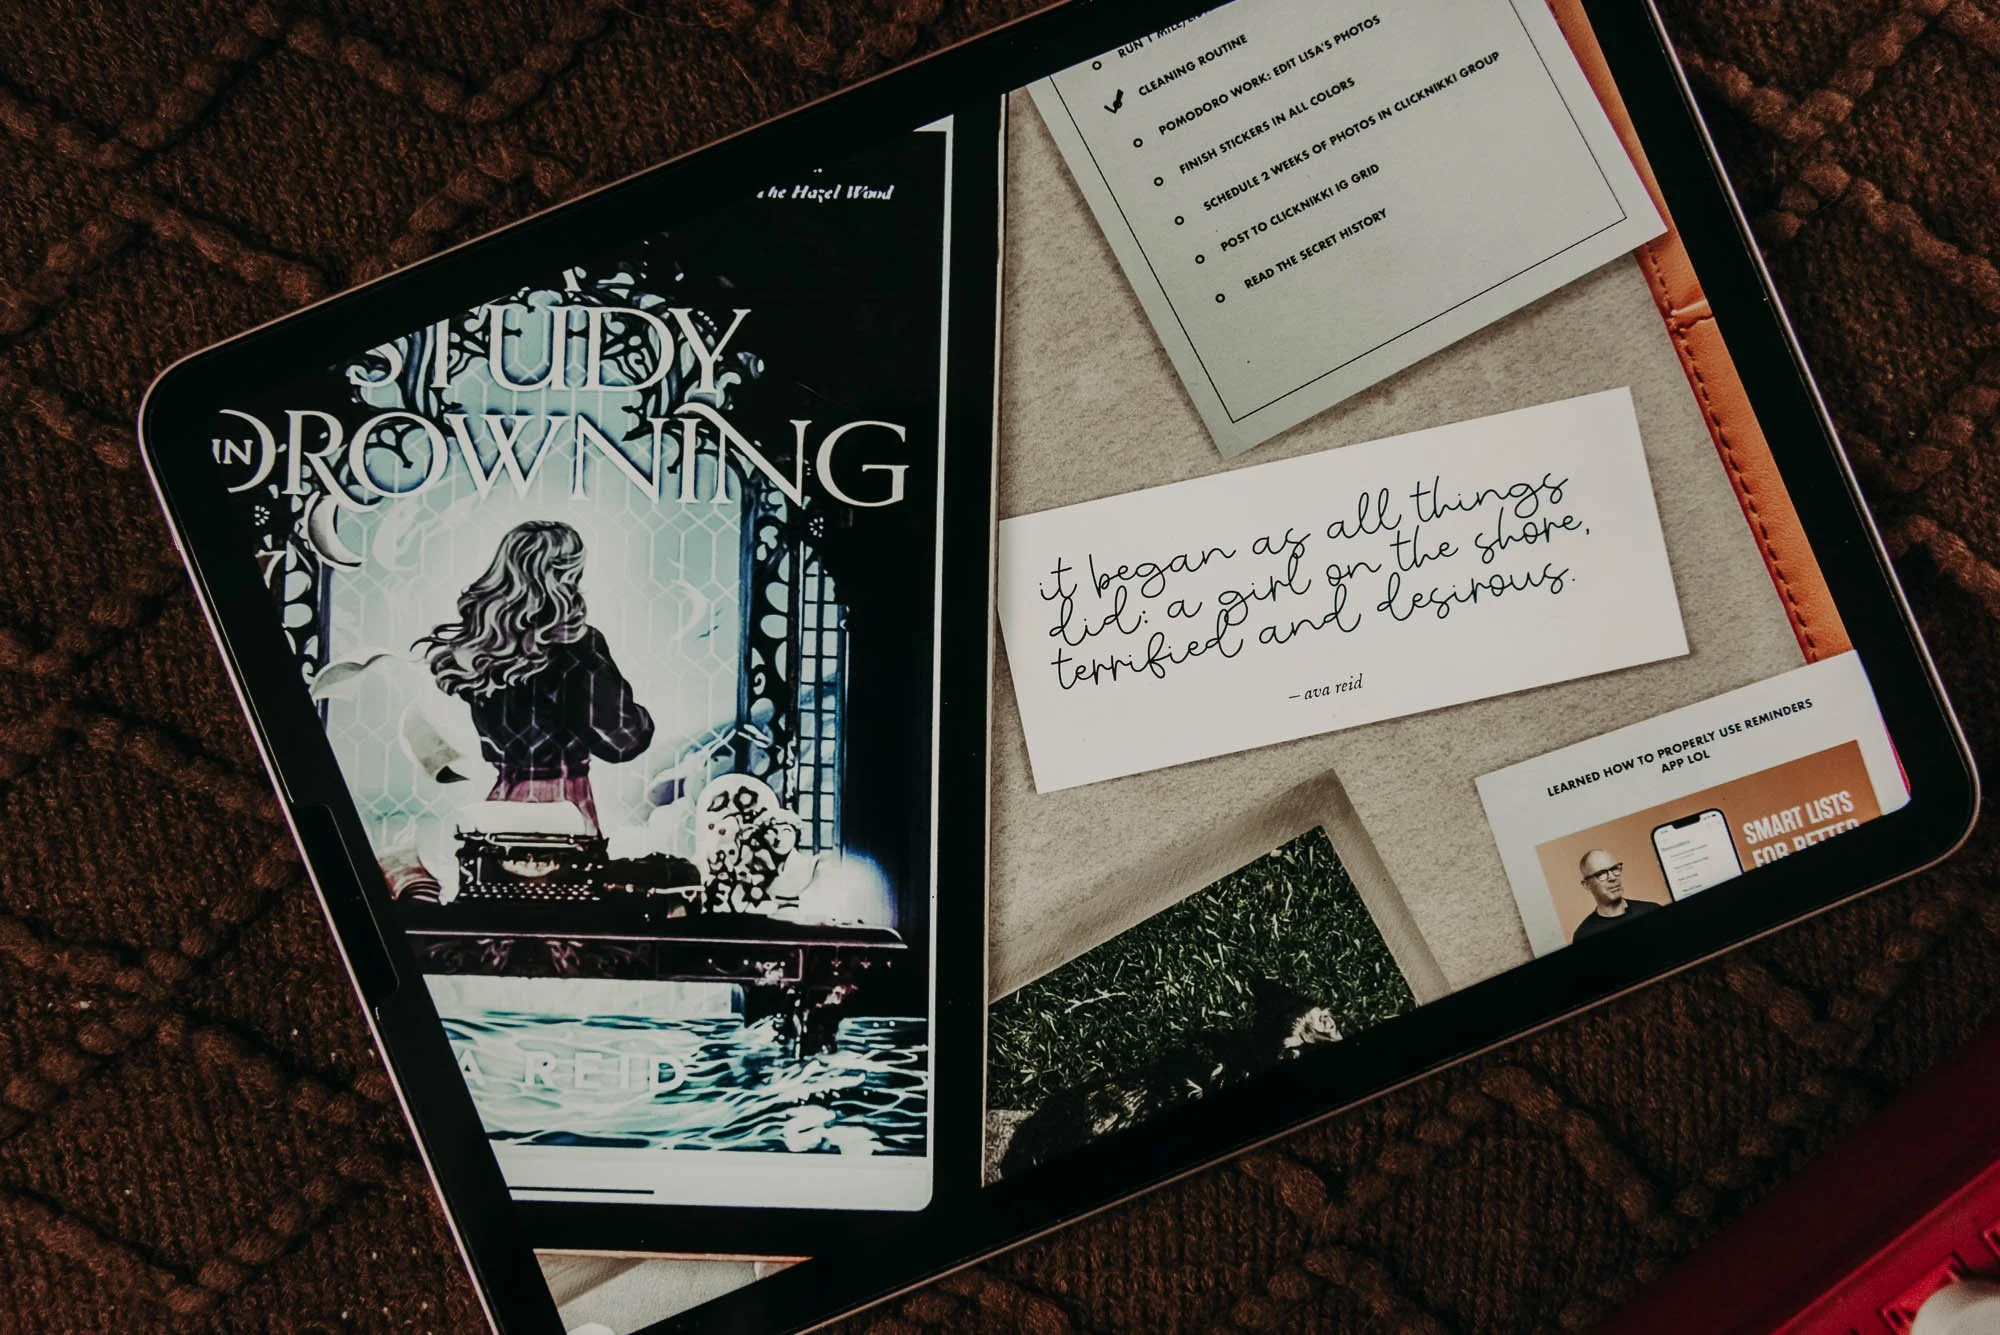 The Hazel Wood
STUDY
IN DROWNING
A REID
RUN 1 MILE/
CLEANING ROUTINE
POMODORO WORK: EDIT LISA'S PHOTOS
FINISH STICKERS IN ALL COLORS
SCHEDULE 2 WEEKS OF PHOTOS IN CLICKNIKKI GROUP
POST TO CLICKNIKKI IG GRID
READ THE SECRET HISTORY
it began as all things
did: a girl on the shore,
terrified and desirous.
– ava reid
LEARNED HOW TO PROPERLY USE REMINDERS
APP LOL
SMART LISTS
FOR BETTER